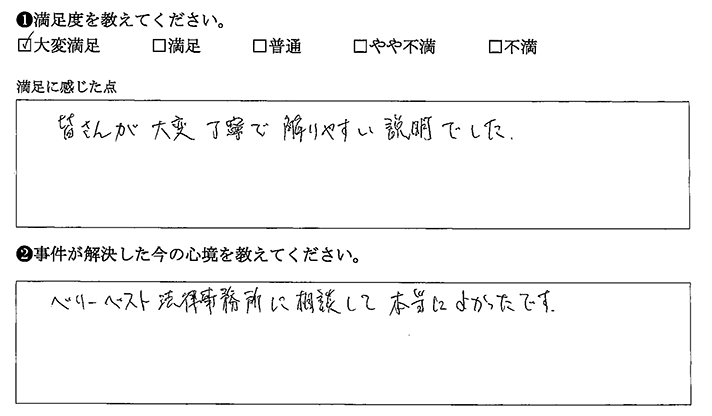 ❶満足度を教えてください。
☑大変満足 □満足 □普通 □やや不満 □不満
満足に感じた点
皆さんが大変丁寧で解りやすい説明でした.
❷事件が解決した今の心境を教えてください。
ベリーベスト法律事務所に相談して本当によかったです.